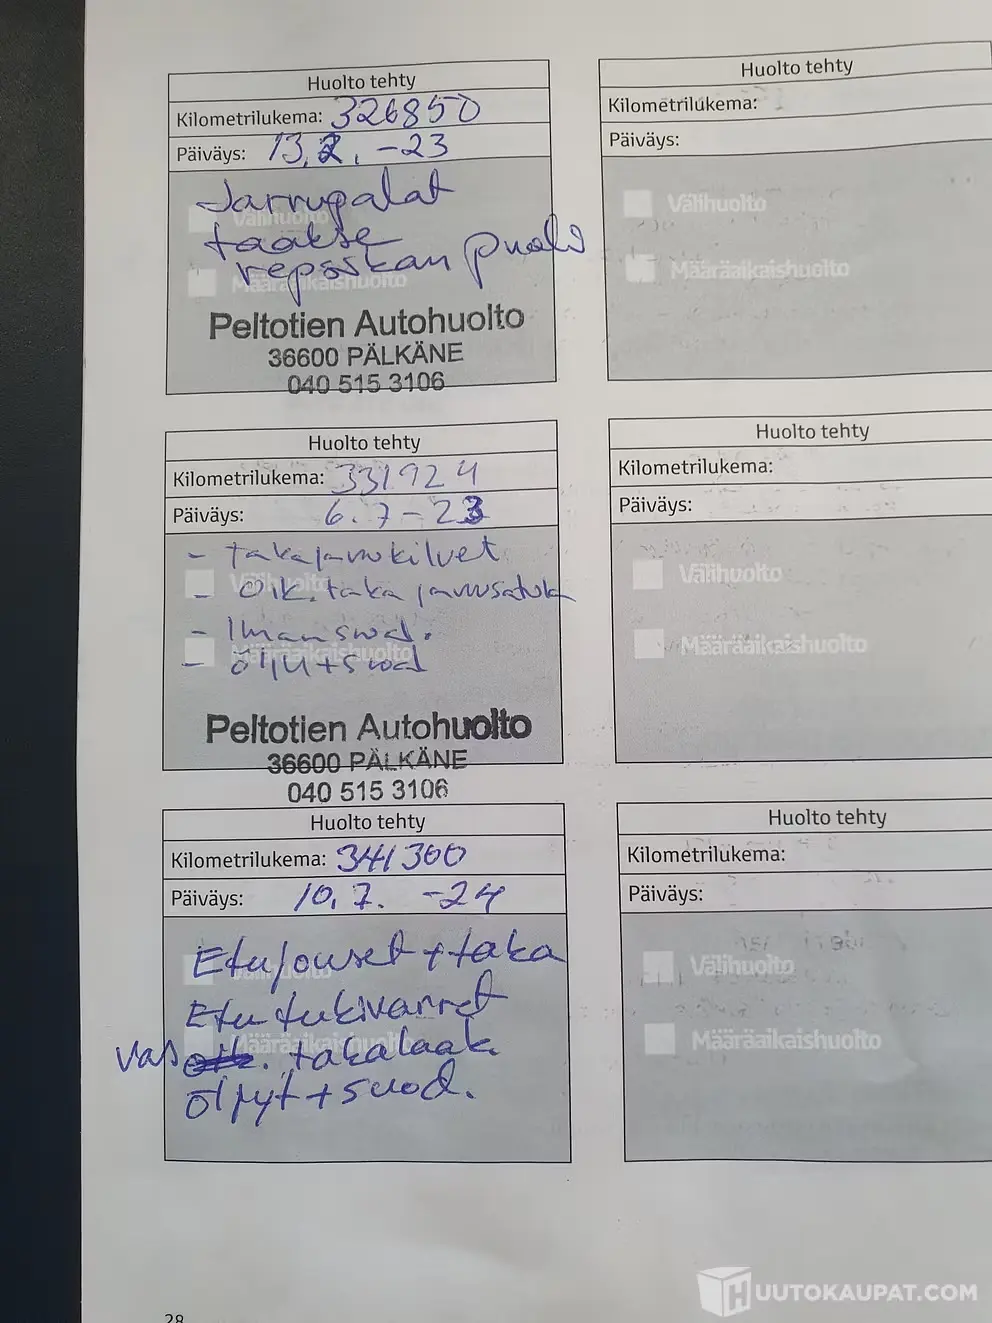 Huolto tehty
Kilometrilukema: 326850
Päiväys: 13.2. -23
Jarrupalat
Välihuolto
taakse
repsskan puoli
Määräaikaishuolto
Peltotien Autohuolto
36600 PÄLKÄNE
040 515 3106
Huolto tehty
Kilometrilukema:
Päiväys:
Välihuolto
Määräaikaishuolto
Huolto tehty
Kilometrilukema: 331924
Päiväys: 6.7-23
- takajarrukilvet
Välihuolto
- Oik. taka jarrusatula
- Ilmansuod.
Määräaikaishuolto
- öljy+suod
Peltotien Autohuolto
36600 PÄLKÄNE
040 515 3106
Huolto tehty
Kilometrilukema:
Päiväys:
Välihuolto
Määräaikaishuolto
Huolto tehty
Kilometrilukema: 341300
Päiväys: 10.7. -24
Etujouset + taka
Välihuolto
Etu tukivarret
Määräaikaishuolto
vas. takalaak.
öljyt+suod.
Huolto tehty
Kilometrilukema:
Päiväys:
Välihuolto
Määräaikaishuolto
28
HUUTOKAUPAT.COM